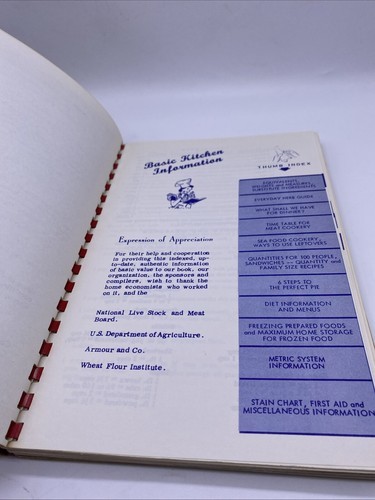 Basic Kitchen
Information
Expression of Appreciation
For their help and cooperation
in providing this indexed, up-
to-date, authentic information
of basic value to our book, our
organization, the sponsors and
compilers, wish to thank the
home economists who worked
on it, and the
National Live Stock and Meat
Board.
U.S. Department of Agriculture.
Armour and Co.
Wheat Flour Institute.
THUMB INDEX
EQUIVALENTS,
WEIGHTS and MEASURES,
SUBSTITUTE INGREDIENTS
EVERYDAY HERB GUIDE
WHAT SHALL WE HAVE
FOR DINNER?
TIME TABLE FOR
MEAT COOKERY
SEA FOOD COOKERY,
WAYS TO USE LEFTOVERS
QUANTITIES FOR 100 PEOPLE,
SANDWICHES -- QUANTITY and
FAMILY SIZE RECIPES
6 STEPS TO
THE PERFECT PIE
DIET INFORMATION
AND MENUS
FREEZING PREPARED FOODS
and MAXIMUM HOME STORAGE
FOR FROZEN FOOD
METRIC SYSTEM
INFORMATION
STAIN CHART, FIRST AID and
MISCELLANEOUS INFORMATION